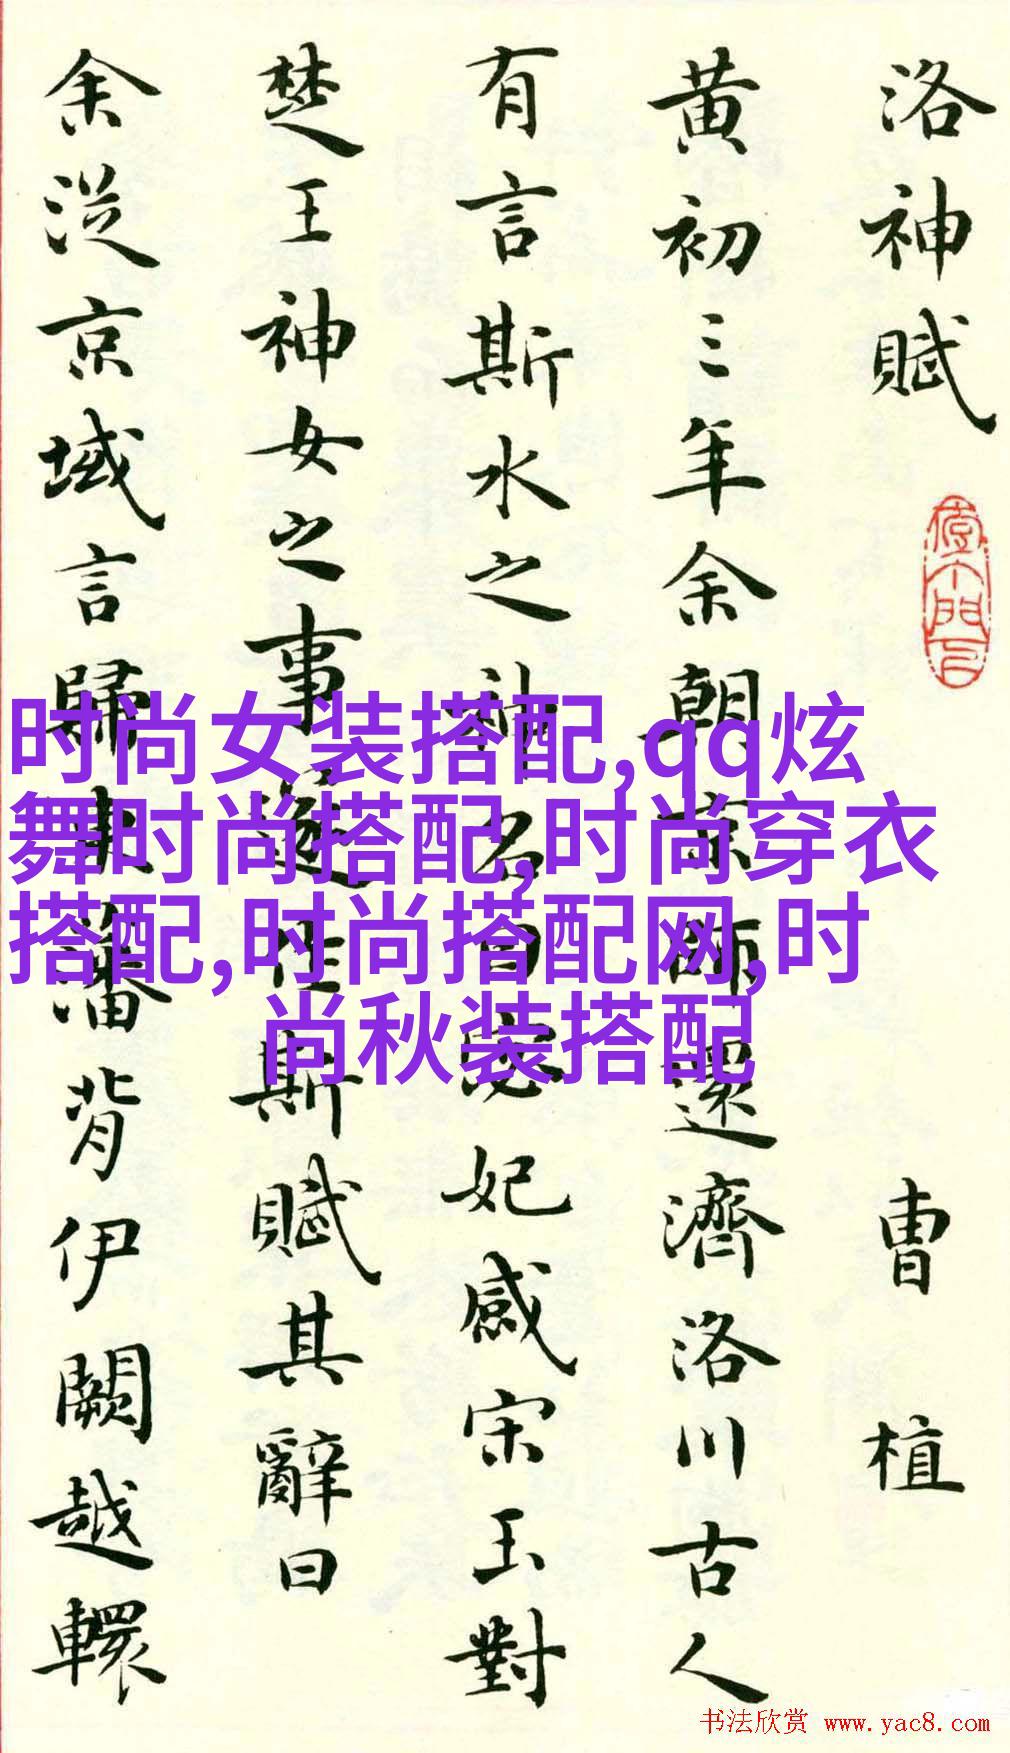 洛神賦
曹植
黃初三年余朝京師還濟洛川古人
有言斯水之神名曰宓妃感宋玉對
楚王神女之事遂作斯賦其辭曰
余從京域言歸東藩背伊闕越轘
时尚女装搭配,qq炫
舞时尚搭配,时尚穿衣
搭配,时尚搭配网,时
尚秋装搭配
书法欣赏 www.yac8.com